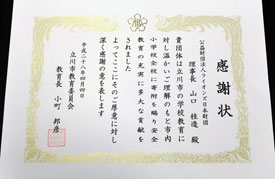 感謝状
公益財団法人ライオンズ日本財団
理事長 山口 桂造 殿
貴団体は立川市の学校教育に
対し温かいご理解のもと市内
小学校全校に寄附を賜り安全
教育の充実に多大な貢献を
されました
よってここにそのご厚意に対し
深く感謝の意を表します
平成二十八年四月四日
立川市教育委員会
教育長 小町 邦彦